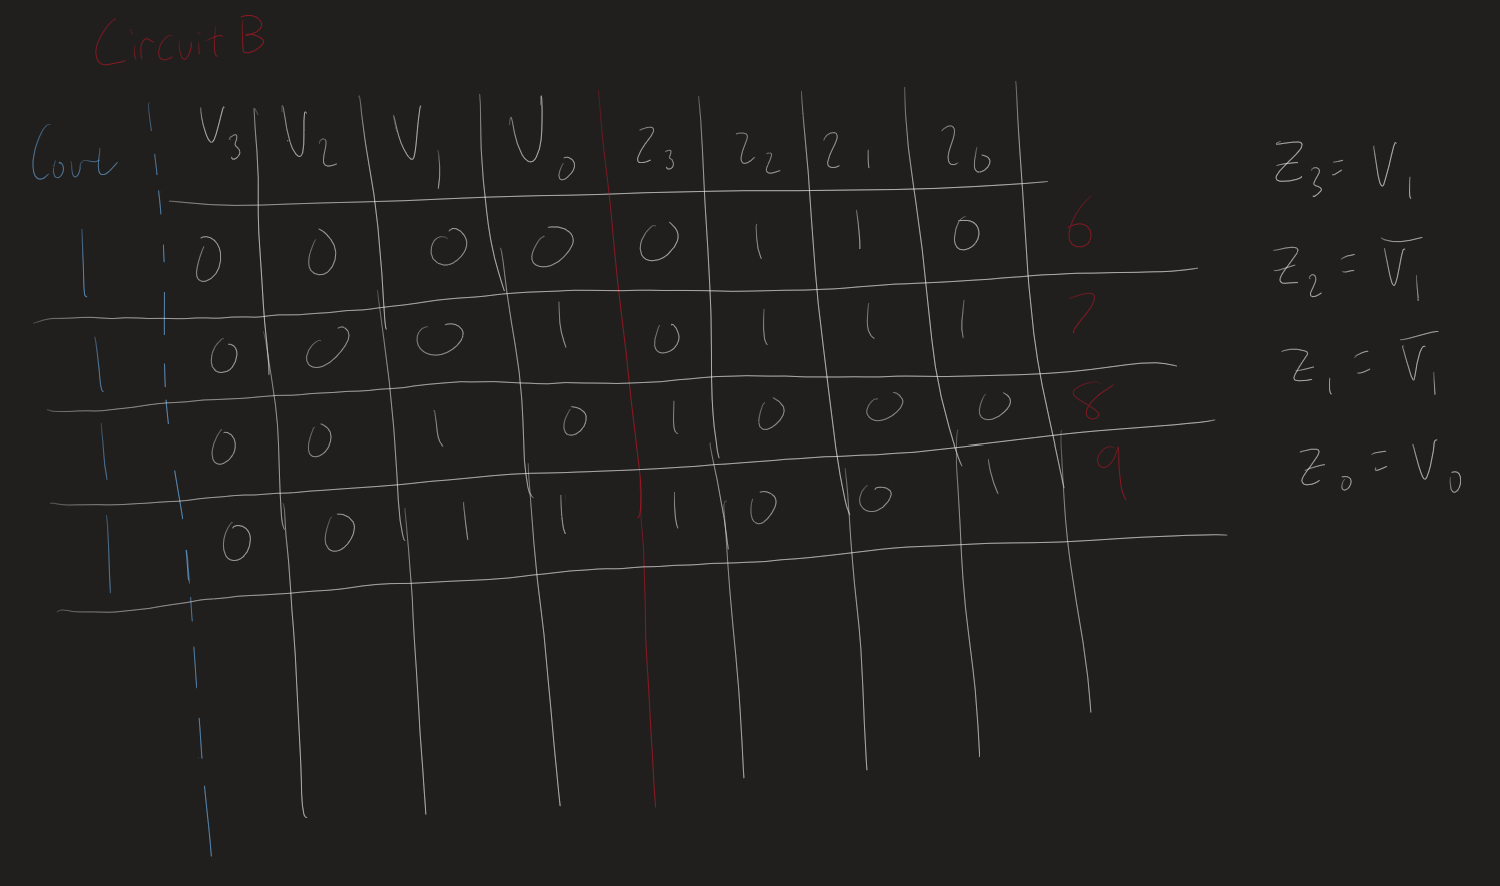 Circuit B
Cout V3 V2 V1 V0 Z3 Z2 Z1 Z0
1 0 0 0 0 0 1 1 0 6
1 0 0 0 1 0 1 1 1 7
1 0 0 1 0 1 0 0 0 8
1 0 0 1 1 1 0 0 1 9
Z3 = V1
Z2 = V̅1
Z1 = V̅1
Z0 = V0